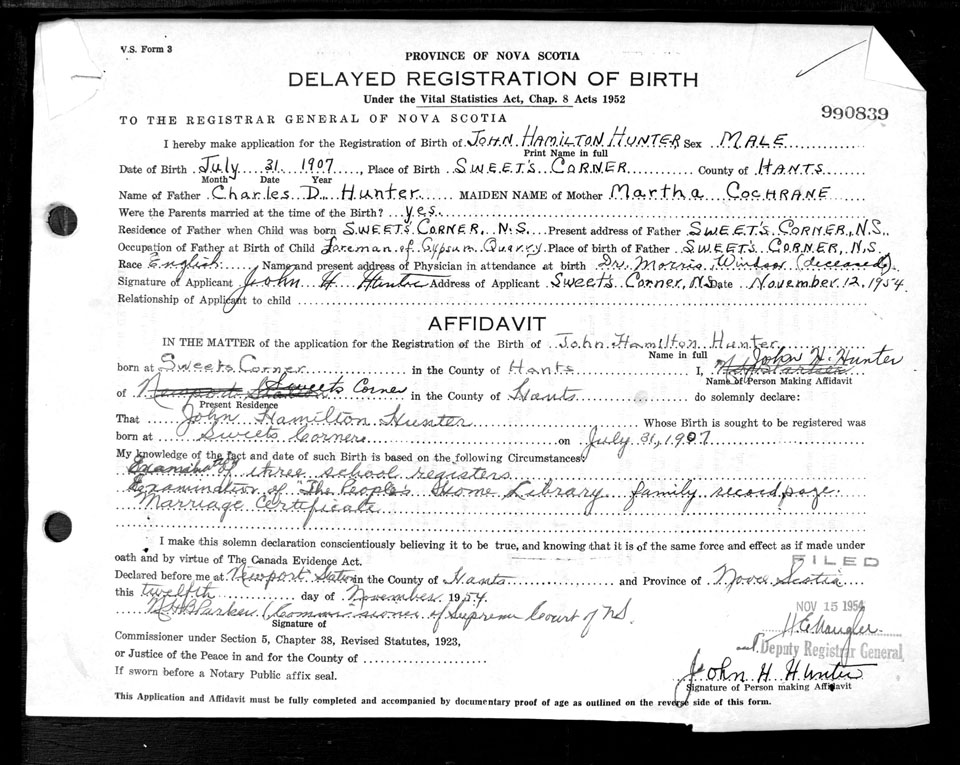 V.S. Form 3
PROVINCE OF NOVA SCOTIA
DELAYED REGISTRATION OF BIRTH
Under the Vital Statistics Act, Chap. 8 Acts 1952
990839
TO THE REGISTRAR GENERAL OF NOVA SCOTIA
I hereby make application for the Registration of Birth of JOHN HAMILTON HUNTER Sex MALE
Print Name in full
Date of Birth July 31 1907, Place of Birth SWEET'S CORNER County of HANTS
Month Date Year
Name of Father Charles D. Hunter MAIDEN NAME of Mother Martha COCHRANE
Were the Parents married at the time of the Birth? yes
Residence of Father when Child was born SWEET'S CORNER, N.S. Present address of Father SWEET'S CORNER, N.S.
Occupation of Father at Birth of Child Foreman of Gypsum Quarry Place of birth of Father SWEET'S CORNER, N.S.
Race English Name and present address of Physician in attendance at birth Dr. Morris, Windsor (deceased)
Signature of Applicant John H Hunter Address of Applicant Sweet's Corner, NS Date November 12, 1954
Relationship of Applicant to child
AFFIDAVIT
IN THE MATTER of the application for the Registration of the Birth of John Hamilton Hunter
Name in full
born at Sweets Corner in the County of Hants I, John H. Hunter
Name of Person Making Affidavit
of Newport Station Sweets Corner in the County of Hants do solemnly declare:
Present Residence
That John Hamilton Hunter Whose Birth is sought to be registered was
born at Sweets Corners on July 31, 1907
My knowledge of the fact and date of such Birth is based on the following Circumstances:
Examination of three school registers
Examination of "The People's Home Library family record page
Marriage Certificate
I make this solemn declaration conscientiously believing it to be true, and knowing that it is of the same force and effect as if made under
oath and by virtue of The Canada Evidence Act.
FILED
Declared before me at Newport Station in the County of Hants and Province of Nova Scotia
this twelfth day of November 1954
NOV 15 1954
Parker (Commissioner of Supreme Court of NS.
Signature of
Commissioner under Section 5, Chapter 38, Revised Statutes, 1923,
Deputy Registrar General
or Justice of the Peace in and for the County of
If sworn before a Notary Public affix seal.
John H Hunter
Signature of Person making Affidavit
This Application and Affidavit must be fully completed and accompanied by documentary proof of age as outlined on the reverse side of this form.